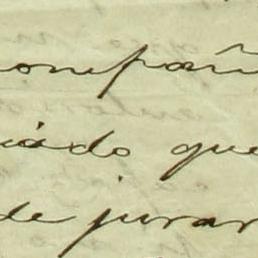 compañ
iado que
de jurar